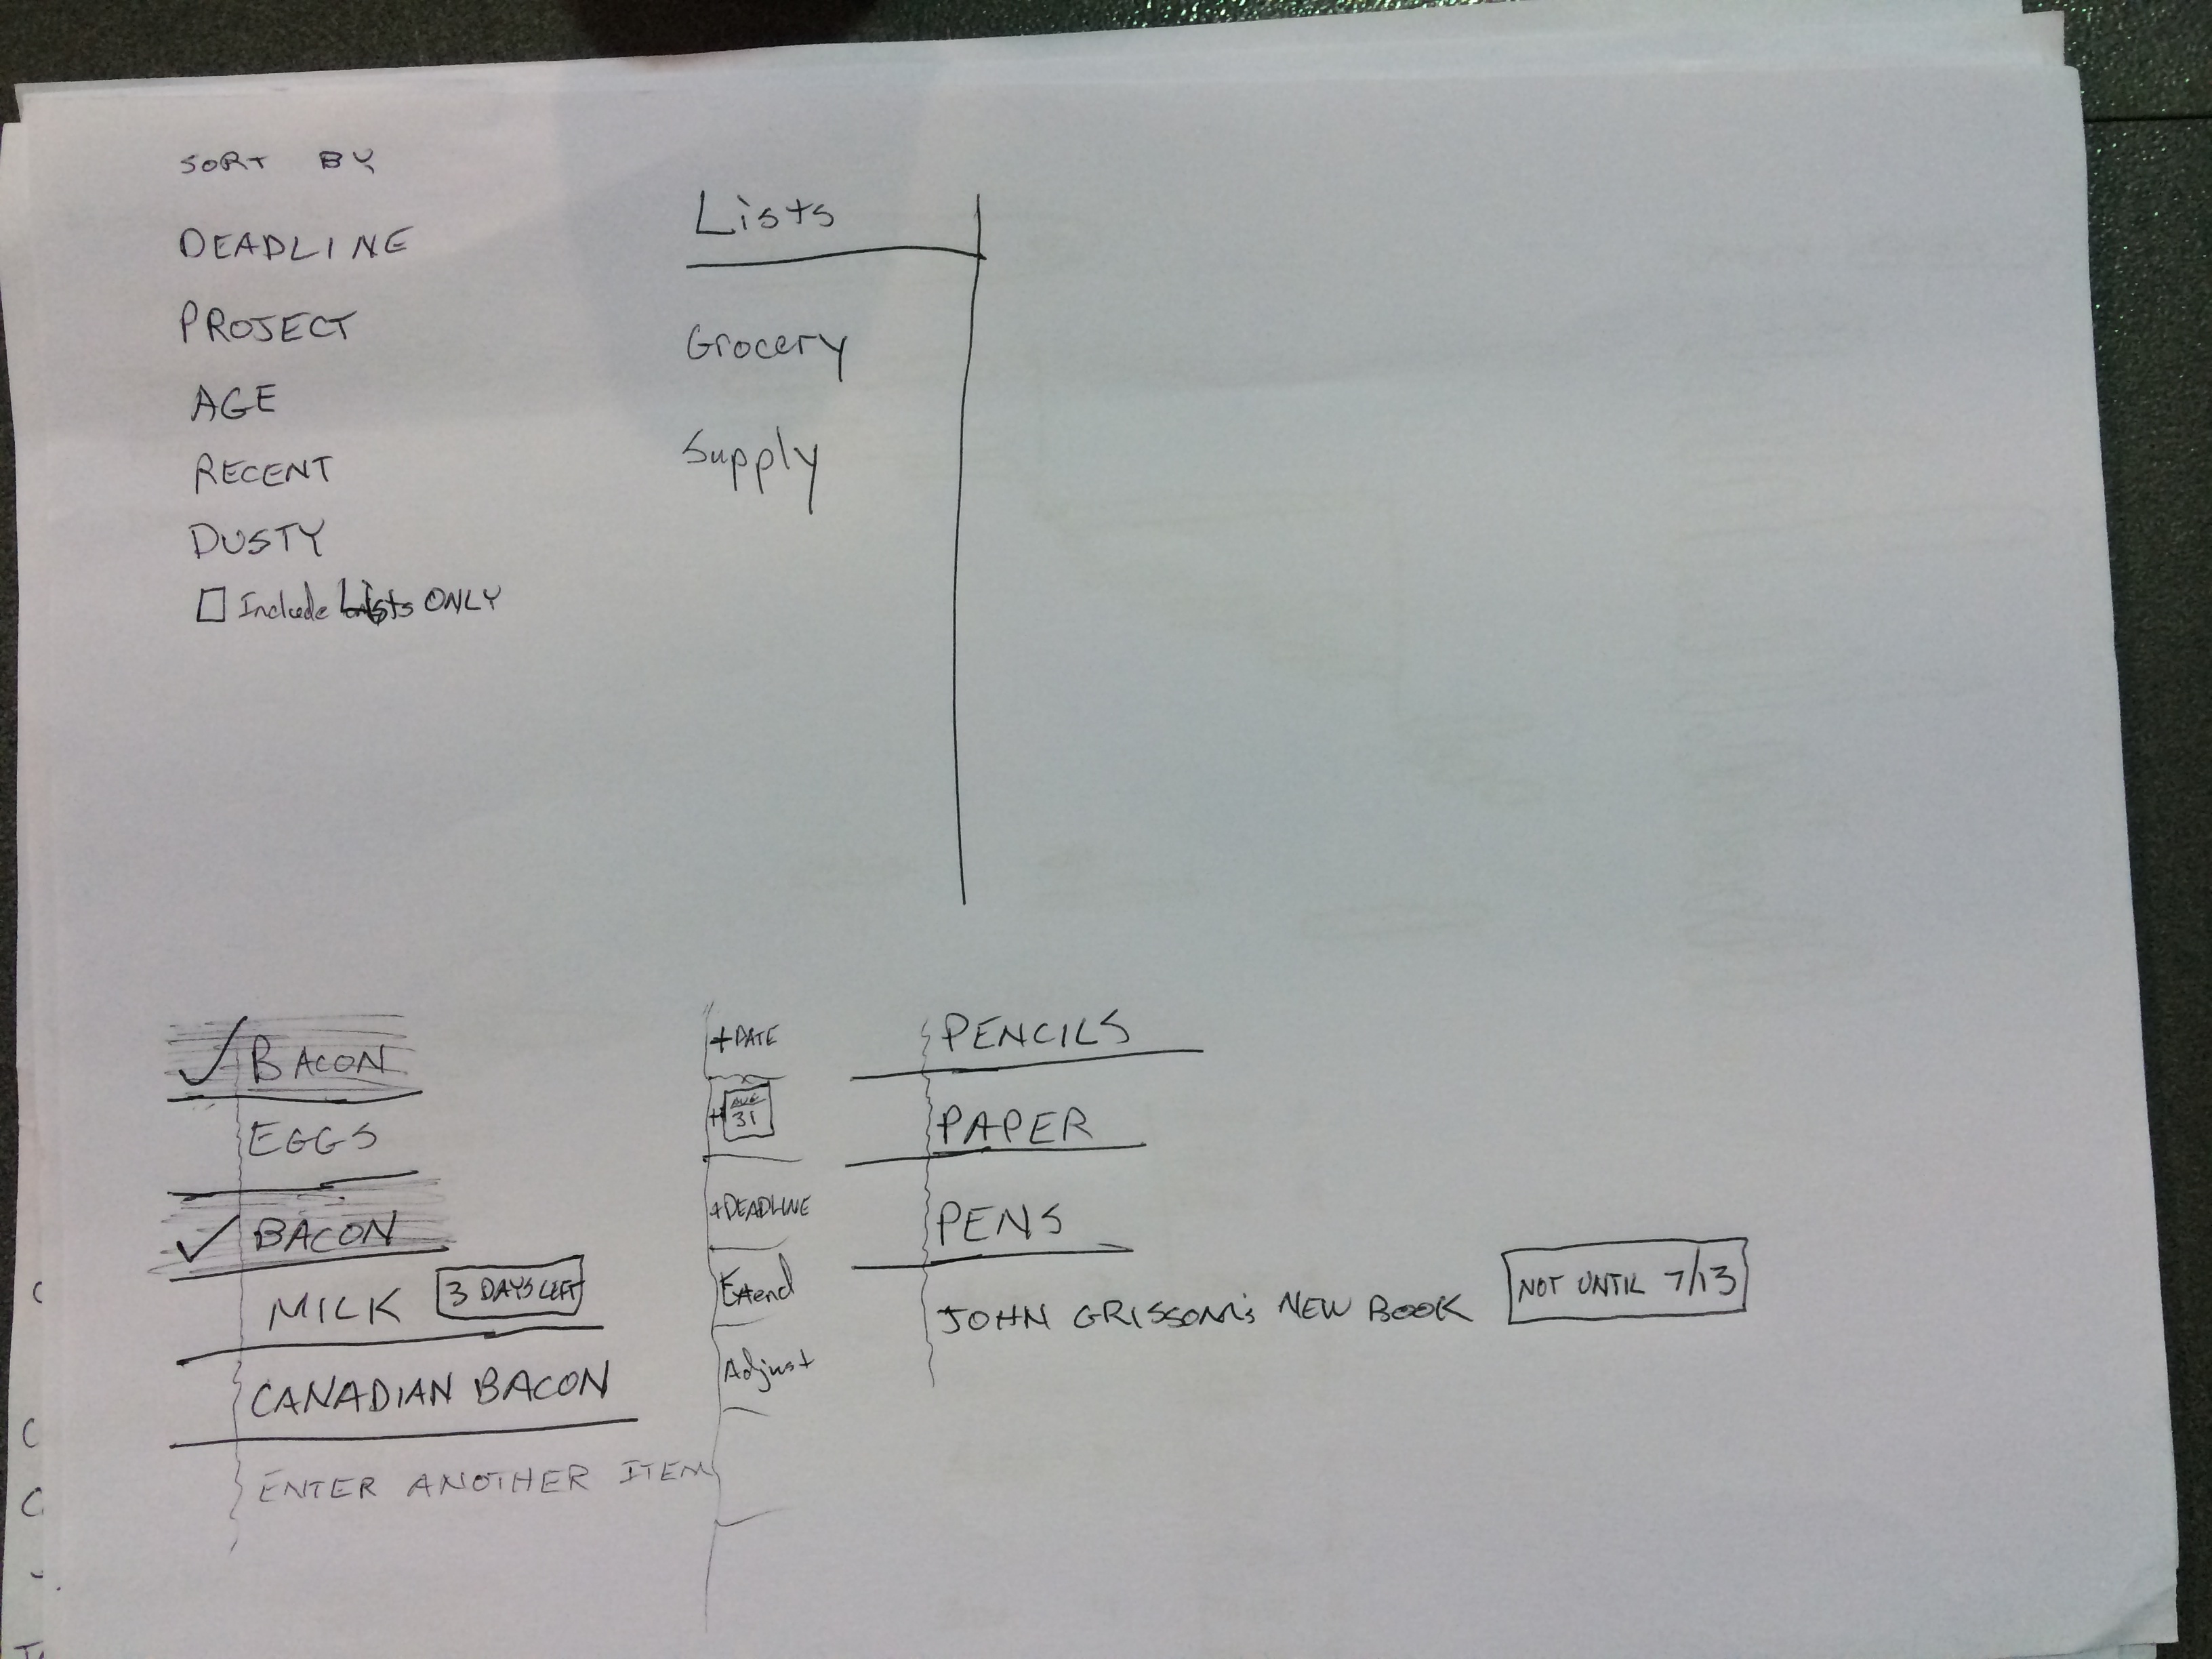 SORT BY
DEADLINE
PROJECT
AGE
RECENT
DUSTY
Include Lists ONLY
Lists
Grocery
Supply
✓ BACON
EGGS
✓ BACON
MILK 3 DAYS LEFT
CANADIAN BACON
ENTER ANOTHER ITEM
+DATE
+ AUG 31
+DEADLINE
Extend
Adjust
PENCILS
PAPER
PENS
JOHN GRISSOM's NEW BOOK NOT UNTIL 7/13